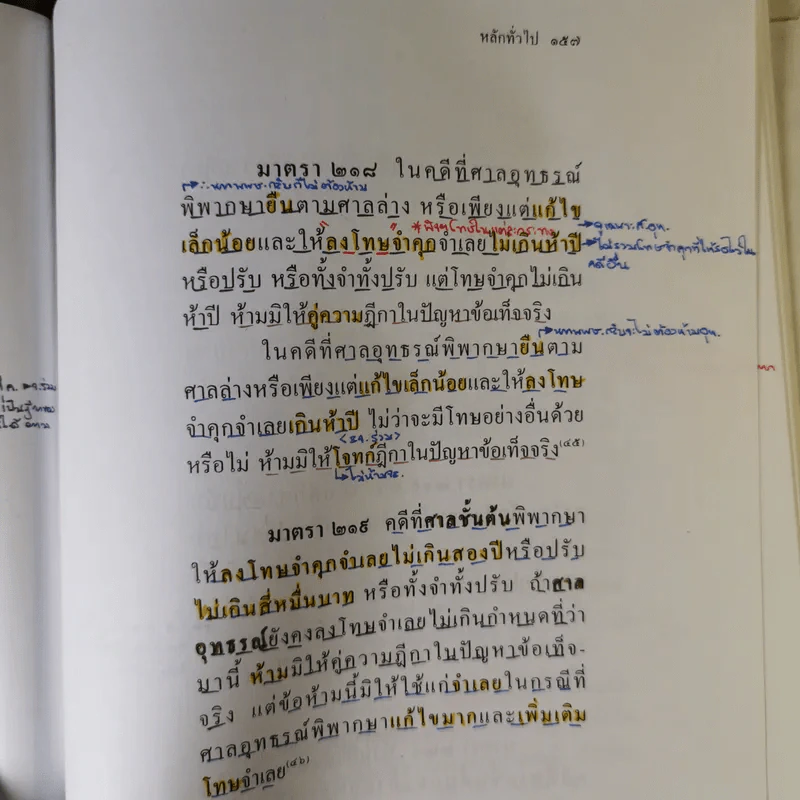 หลักทั่วไป ๑๕๗
มาตรา ๒๑๘ ในคดีที่ศาลอุทธรณ์
พิพากษายืนตามศาลล่าง หรือเพียงแต่แก้ไข
เล็กน้อยและให้ลงโทษจำคุกจำเลยไม่เกินห้าปี
หรือปรับ หรือทั้งจำทั้งปรับ แต่โทษจำคุกไม่เกิน
ห้าปี ห้ามมิให้คู่ความฎีกาในปัญหาข้อเท็จจริง
ในคดีที่ศาลอุทธรณ์พิพากษายืนตาม
ศาลล่างหรือเพียงแต่แก้ไขเล็กน้อยและให้ลงโทษ
จำคุกจำเลยเกินห้าปี ไม่ว่าจะมีโทษอย่างอื่นด้วย
หรือไม่ ห้ามมิให้โจทก์ฎีกาในปัญหาข้อเท็จจริง(๔๕)
มาตรา ๒๑๙ คดีที่ศาลชั้นต้นพิพากษา
ให้ลงโทษจำคุกจำเลยไม่เกินสองปีหรือปรับ
ไม่เกินสี่หมื่นบาท หรือทั้งจำทั้งปรับ ถ้าศาล
อุทธรณ์ยังคงลงโทษจำเลยไม่เกินกำหนดที่ว่า
มานี้ ห้ามมิให้คู่ความฎีกาในปัญหาข้อเท็จ-
จริง แต่ข้อห้ามนี้มิให้ใช้แก่จำเลยในกรณีที่
ศาลอุทธรณ์พิพากษาแก้ไขมากและเพิ่มเติม
โทษจำเลย(๔๖)